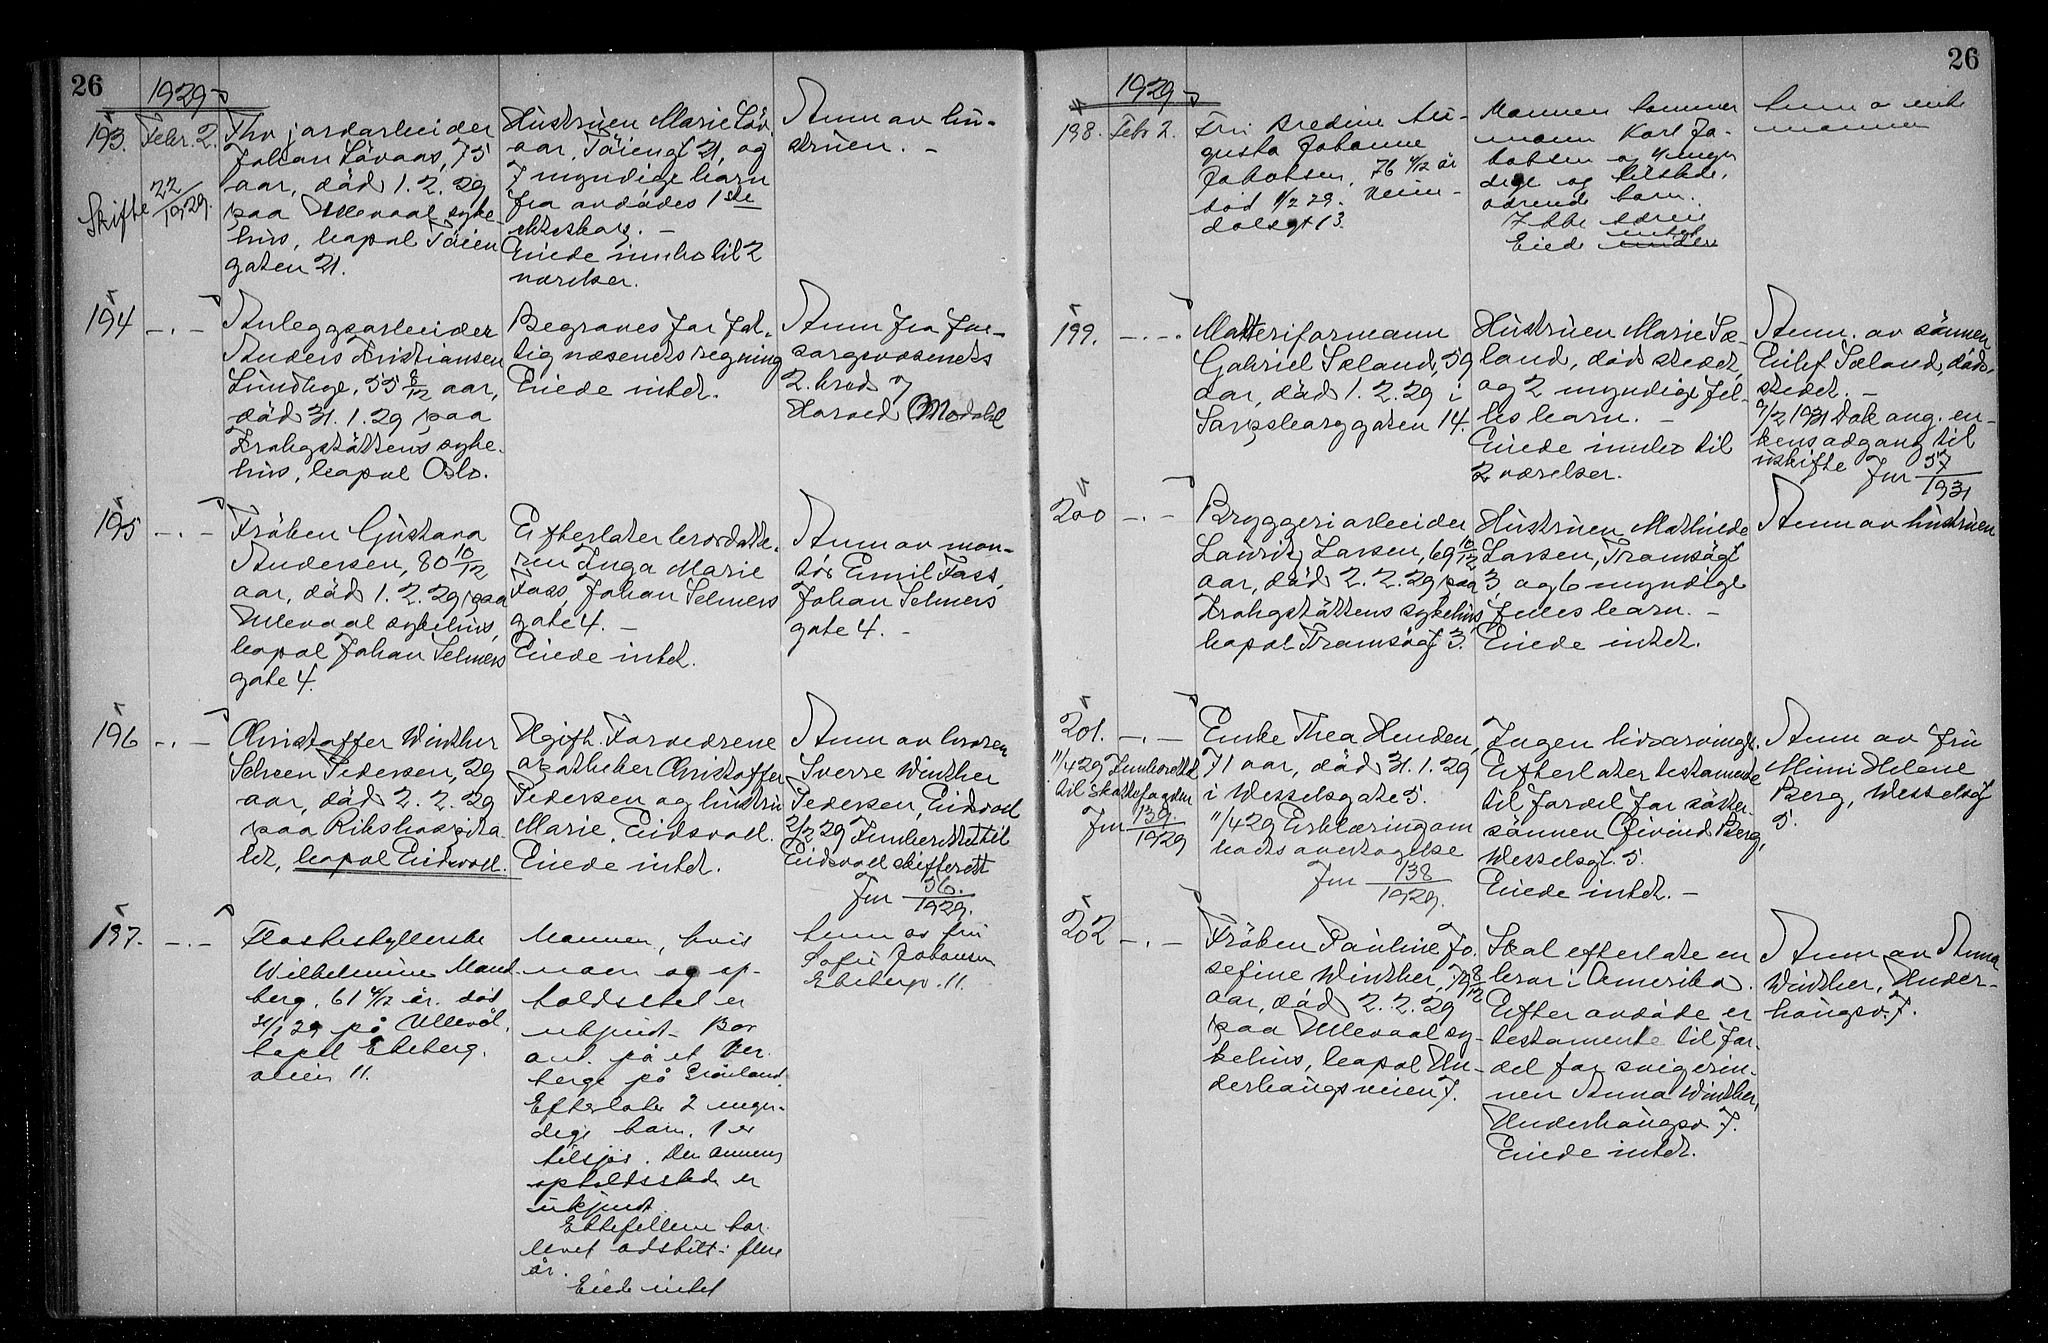 26
1929
193. Febr. 2.
Skifte 22/1929.
Fhv. jordarbeider
Johan Lövaas, 75
aar, död 1. 2. 29
paa Ullevaal syke-
hus, bopæl Töien
gaten 21.
Hustruen Marie Löv
aas, Töiengt 21, og
7 myndige barn
fra avdödes 1ste
ekteskap. –
Eiede innbo til 2
værelser.
Anm av hu-
struen. –
194 – . –
Anleggsarbeider
Anders Kristiansen
55 8/12 aar,
död 31. 1. 29 paa
Krohgstöttens syke-
hus, bopæl Oslo.
Begraves for fat-
tigvæsenets regning
Eiede intet.
Anm fra For-
sorgsvæsenets
2. kred v/
Harald Modahl
195 – . –
Fröken Gustava
Andersen, 80 10/12
aar, död 1. 2. 29 paa
Ullevaal sykehus,
bopæl Johan Selmers
gate 4.
Efterlater brordatte-
ren Inga Marie
Foss, Johan Selmers
gate 4. –
Eiede intet.
Anm av mon-
tör Emil Foss,
Johan Selmers
gate 4. –
196 – . –
Christoffer Winther
Schren Pedersen, 29
aar, död 2. 2. 29
paa Rikshospita
let, bopæl Eidsvoll.
Ugift. Forældrene
apotheker Christoffer
Pedersen og hustru
Marie, Eidsvoll.
Eiede intet.
Anm av broren
Sverre Winther
Pedersen, Eidsvoll
2/2 29 Innberettet til
Eidsvoll skifterett
Jnr 56./1929.
197. – . –
Flaskeskyllerske
Wilhelmine Mand
berg, 61 4/12 år. död
31/1 29 på Ullevål,
bopel Ekeberg-
veien 11.
Mannen, hvis
navn og op-
holdssted er
ukjent. Bor
ant. på et her-
berge på Grönland.
Efterlater 2 myn-
dige barn, 1 er
tilsjös. Den annens
opholdssted er
ukjent.
Ektefellene har
levet adskilt i flere
år.
Eiede intet
Anm av fru
Sofie Johansen
Ekebergv. 11.
26
1929
198. Febr 2.
Fru Bredine Au-
gusta Johanne
Jakobsen, 76 4/12 år
död 1/2 29.
dalsgt 13.
Mannen
mann Karl Ja-
kobsen og 4 myn
dige og tilstede-
værende barn.
Ikke særeie
Eiede intet
Anm av enke
mannen
199. – . –
Malteriformann
Gabriel Sæland, 59
aar, död 1. 2. 29 i
Sarpsborggaten 14.
Hustruen Marie Sæ-
land, dödsstedet,
og 2 myndige fel-
les barn. –
Eiede innbo til
2 værelser.
Anm. av sönnen
Eilef Sæland, döds-
stedet. –
9/2 1931 Dok ang. en-
kens adgang til
uskifte Jnr 57/1931
200 – . –
Bryggeriarbeider
Lauritz Larsen, 69 10/12
aar, död 2. 2. 29 paa
Krohgstöttens sykehus,
bopæl Tromsögt 3.
Hustruen Mathilde
Larsen, Tromsögt
3, og 6 myndige
felles barn. –
Eiede intet.
Anm av hustruen
201. – . –
11/4 29 Innberettet
til skattefogden
Jnr 139./1929
Enke Thea Henden,
71 aar, död 31. 1. 29
i Wesselsgate 5.
11/4 29 Erklæring om
boets overtagelse
Jnr 138/1929.
Ingen livsarvinger.
Efterlater testamente
til fordel for söster
sönnen Öivind Berg,
Wesselsgt. 5.
Eiede intet. –
Anm av fru
Mimi Helene
Berg, Wesselsgt
5.
202 – . –
Fröken Pauline Jo-
sefine Winther, 79 8/12
aar, död 2. 2. 29
paa Ullevaal sy-
kehus, bopæl Un-
derhaugsveien 7.
Skal efterlate en
bror i Amerika.
Efter avdöde er
testamente til for-
del for svigerin-
nen Anna Winther,
Underhaugsv. 7.
Eiede intet.
Anm av Anna
Winther, Under-
haugsv. 7.